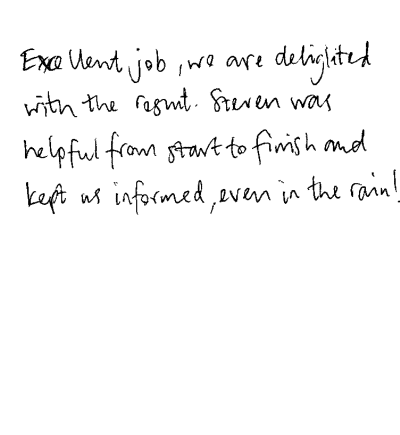 Excellent job, we are delighted
with the result. Steven was
helpful from start to finish and
kept us informed, even in the rain!